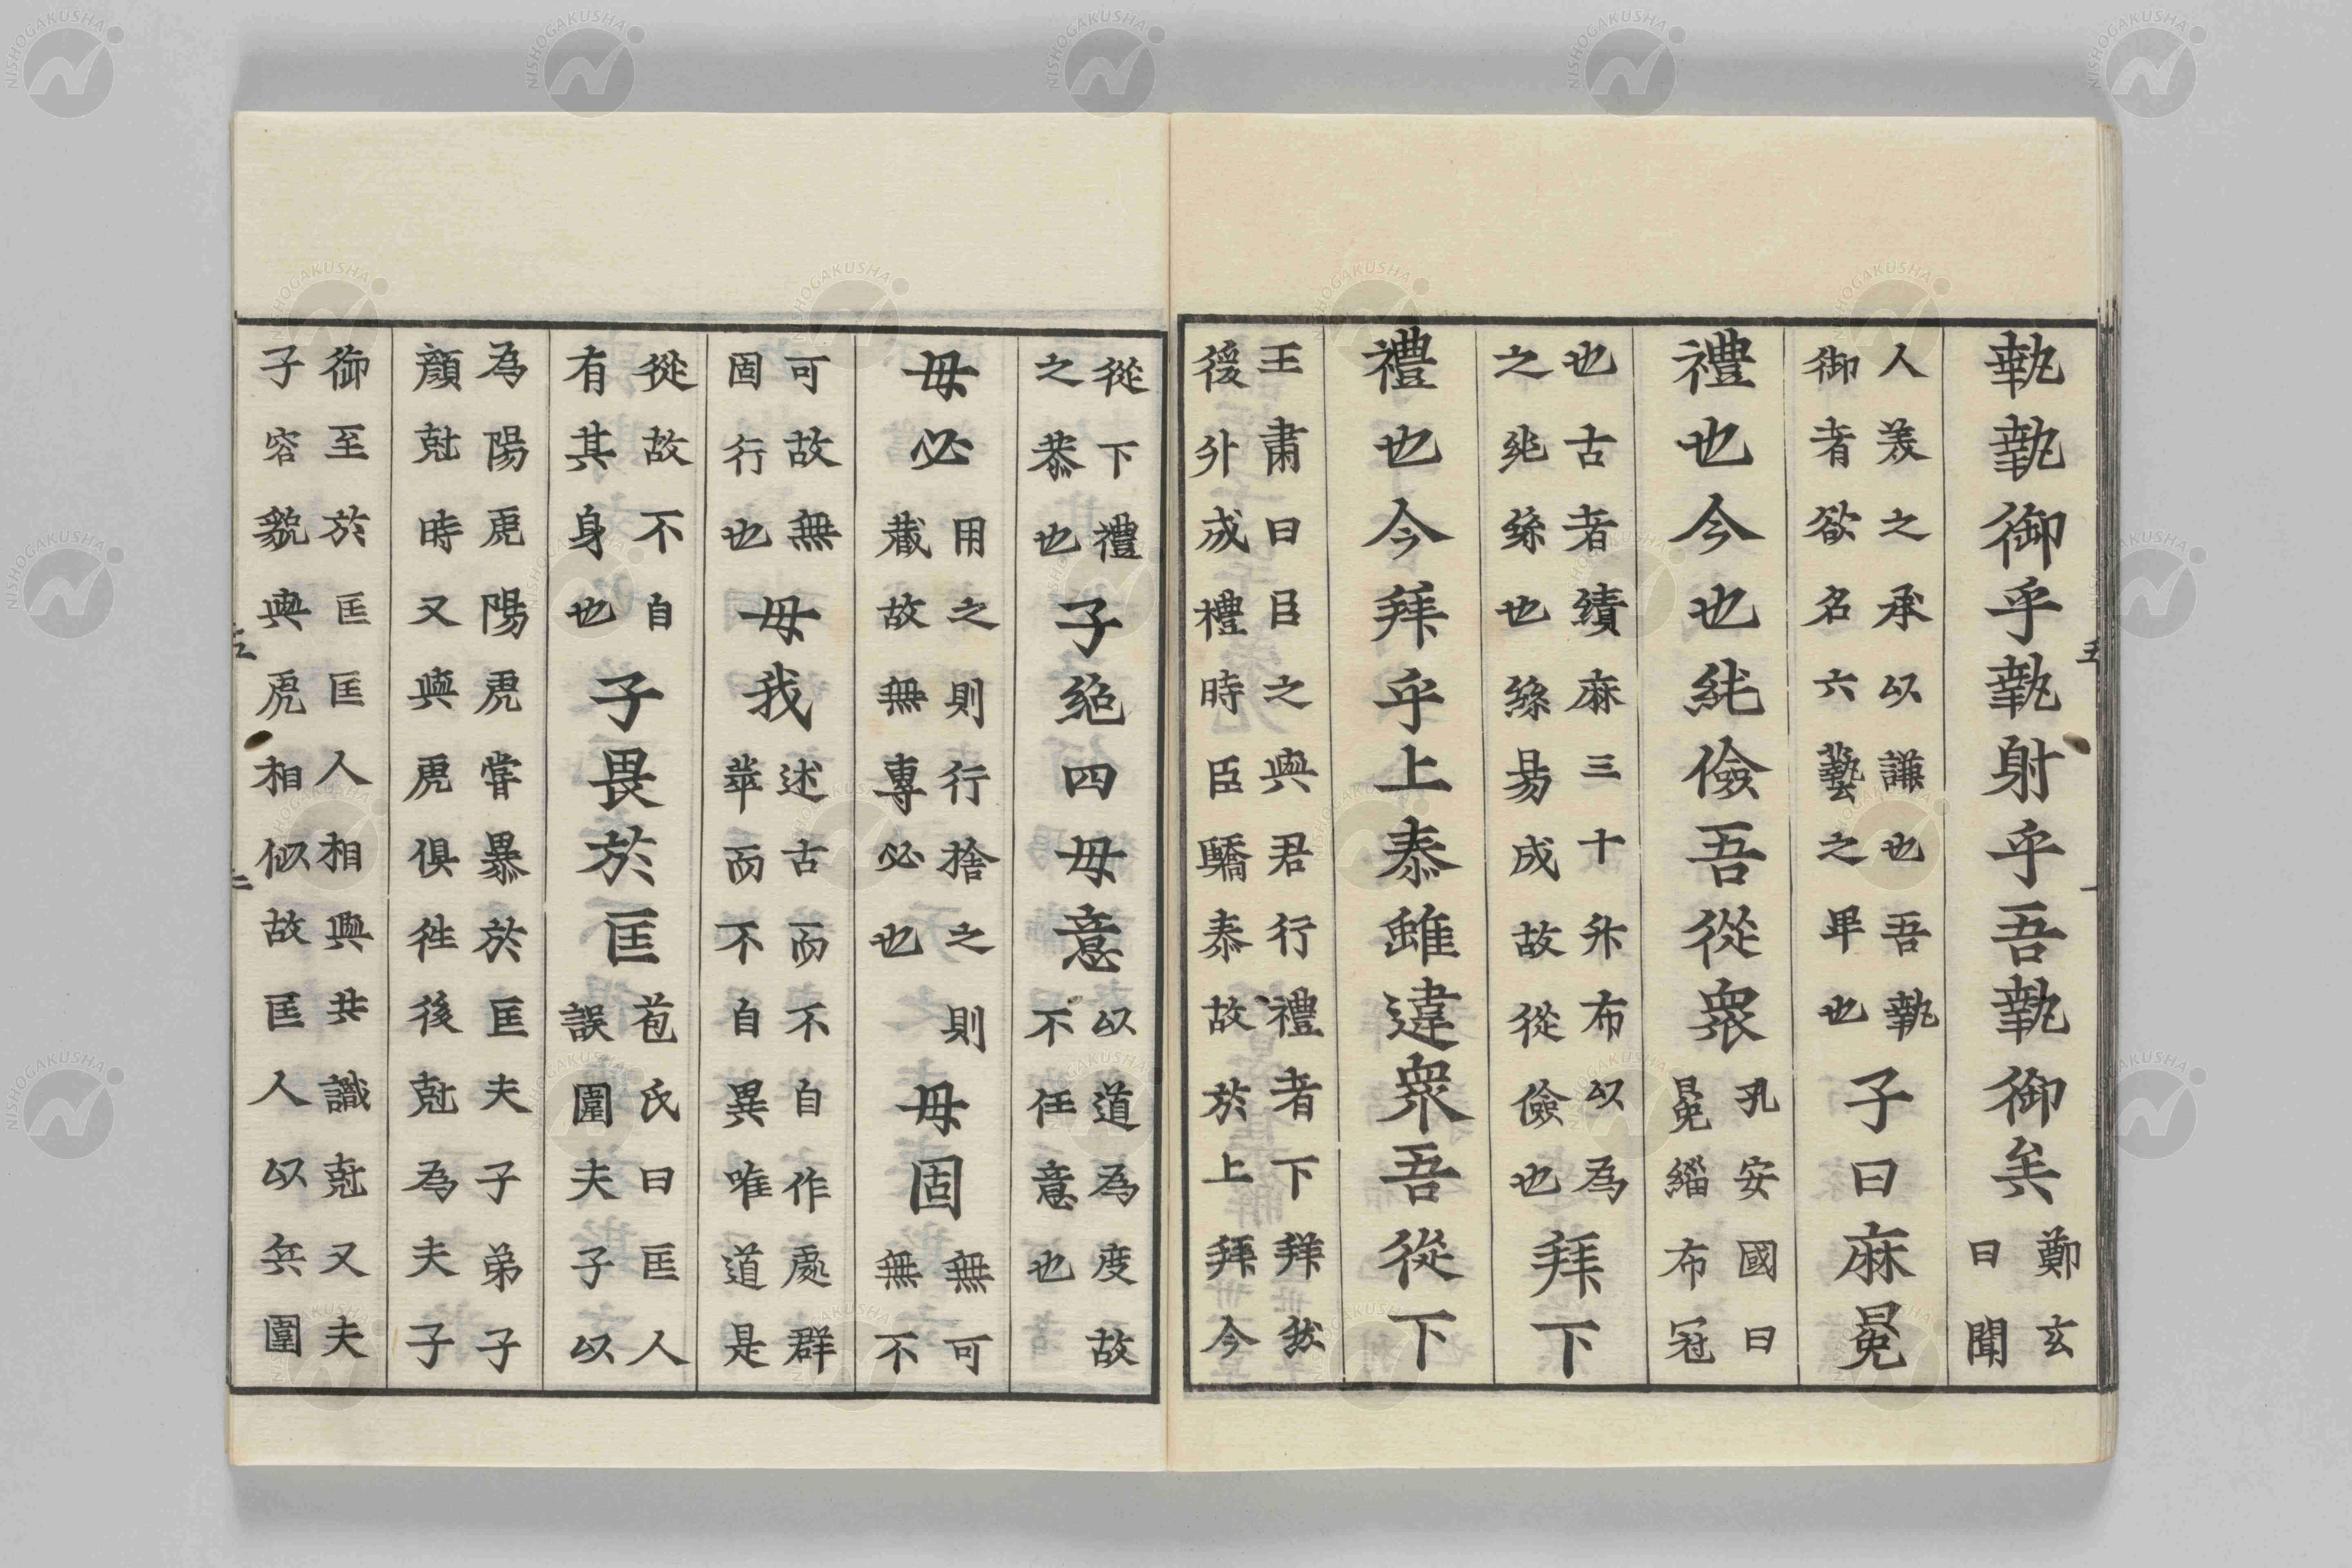 執執御乎執射乎吾執御矣鄭玄曰聞
人羙之承以謙也吾執御者欲名六藝之卑也子曰麻冕
禮也今也純儉吾從衆孔安國曰冕緇布冠
也古者績麻三十升布以為之純絲也絲易成故從儉也拜下
禮也今拜乎上泰雖違衆吾從下
王肅曰臣之與君行禮者下拜然後升成禮時臣驕泰故於上拜今
從下禮之恭也子絶四毋意以道為度故不任意也
毋必用之則行捨之則藏故無專必也毋固無可無不
可故無固行也毋我述古而不自作處群萃而不自異唯道是
從故不自有其身也子畏於匡苞氏曰匡人誤圍夫子以
為陽虎陽虎嘗暴於匡夫子弟子顏尅時又與虎俱往後尅為夫子
御至於匡匡人相與共識尅又夫子容貌與虎相似故匡人以兵圍
NISHOGAKUSHA